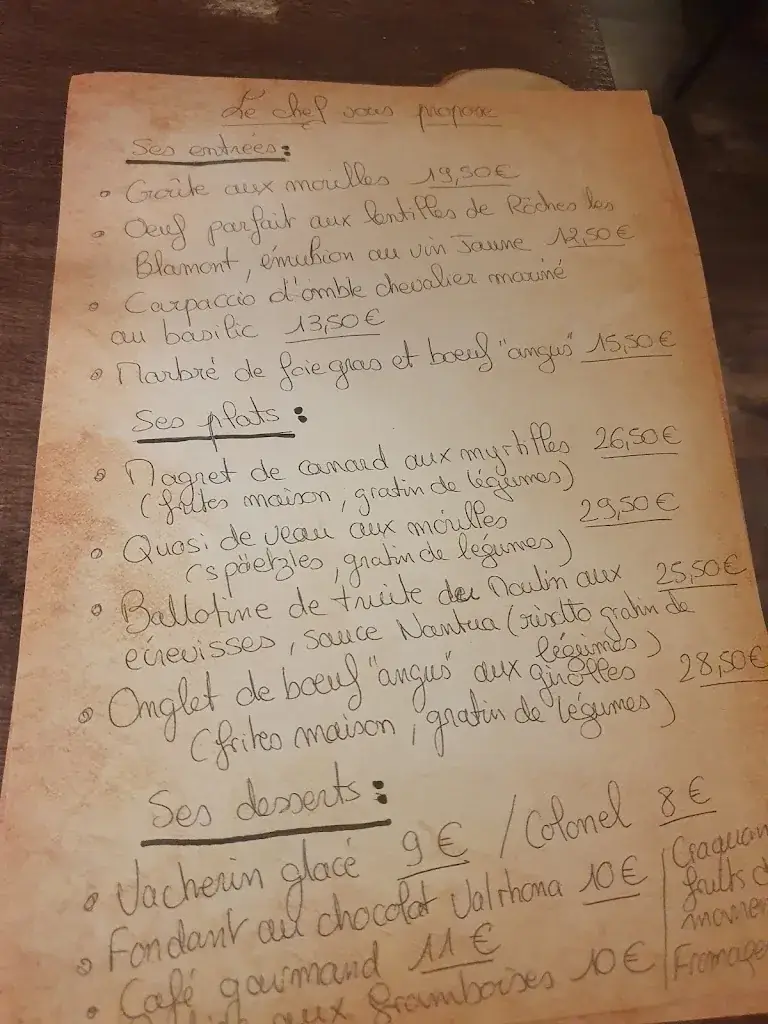 Le chef vous propose
Ses entrées:
Croûte aux morilles 19,50€
Oeuf parfait aux lentilles de Rôches les
Blamont, émulsion au vin Jaune 12,50€
Carpaccio d'omble chevalier mariné
au basilic 13,50€
Marbré de foie gras et boeuf "angus" 15,50€
Ses plats:
Magret de canard aux myrtilles 26,50€
(frites maison, gratin de légumes)
Quasi de veau aux morilles 29,50€
(späetzles, gratin de légumes)
Ballotine de truite du Moulin aux 25,50€
écrevisses, sauce Nantua (risotto gratin de
légumes)
Onglet de boeuf "angus" aux girolles 28,50€
(frites maison, gratin de légumes)
Ses desserts:
Vacherin glacé 9€ / Colonel 8€
Fondant au chocolat Valrhona 10€
Café gourmand 11€
aux framboises 10€
Craquan
fruits d
momen
Fromage